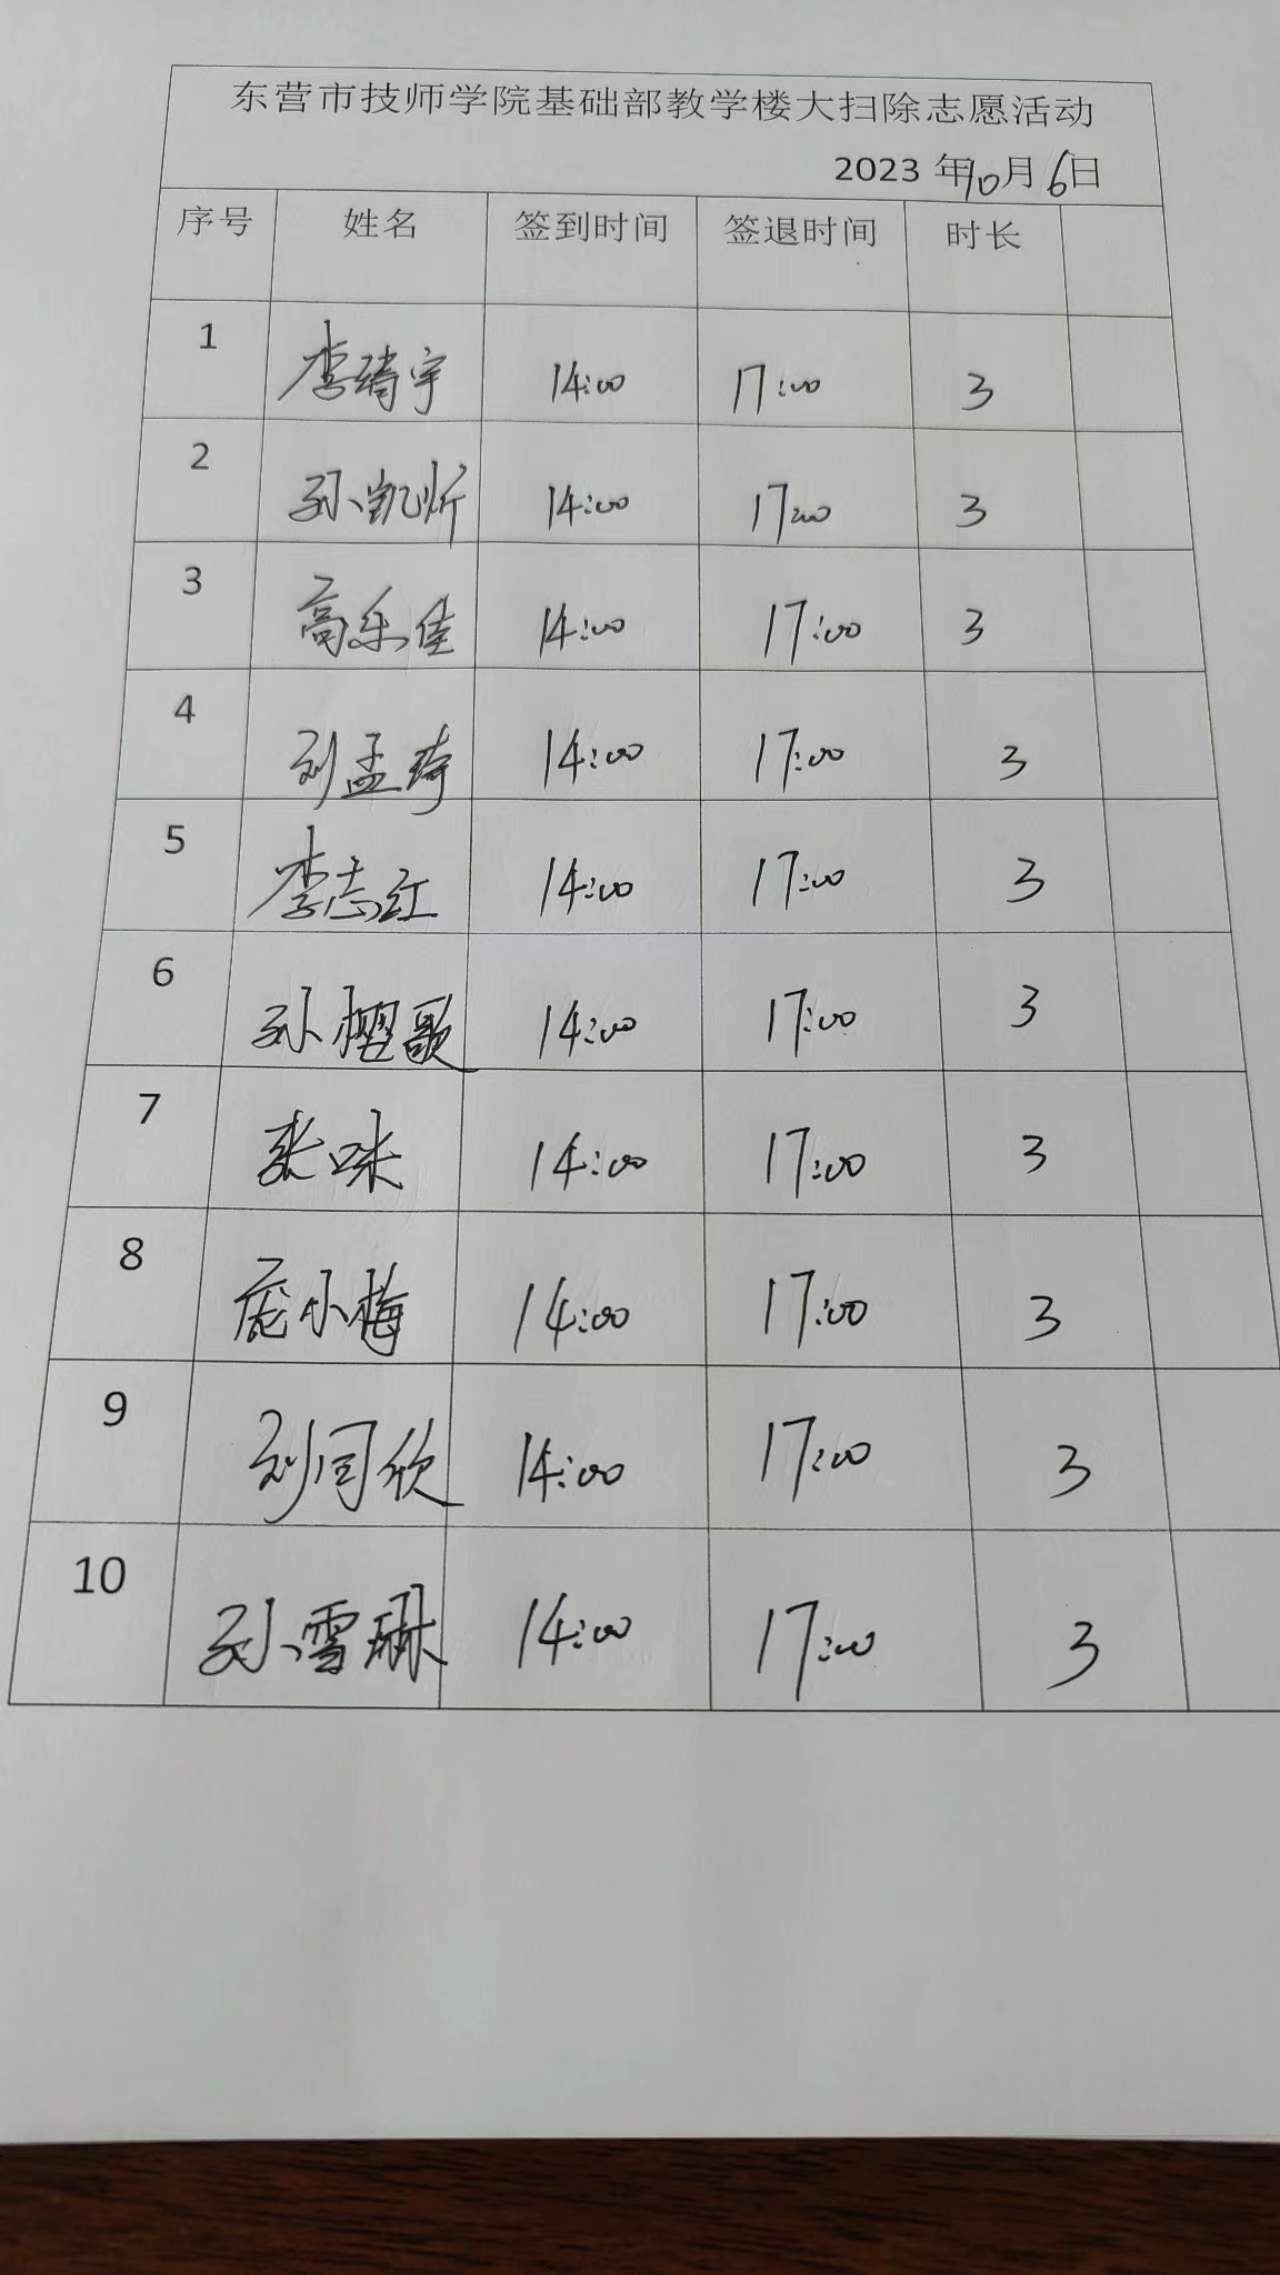 东营市技师学院基础部教学楼大扫除志愿活动
2023 年10月6日
序号 姓名 签到时间 签退时间 时长
1 李绪宇 14:00 17:00 3
2 孙凯炘 14:00 17:00 3
3 高乐佳 14:00 17:00 3
4 刘孟琦 14:00 17:00 3
5 李志红 14:00 17:00 3
6 孙樱歌 14:00 17:00 3
7 张咪 14:00 17:00 3
8 庞小梅 14:00 17:00 3
9 刘同欣 14:00 17:00 3
10 孙雪琳 14:00 17:00 3